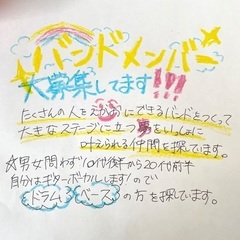 バンドメンバー
大募集してます!!!
たくさんの人をえがおにできるバンドをつくって
大きなステージに立つ夢をいっしょに
叶えられる仲間を探しています。
☆男女問わず10代後半から20代前半
自分はギターボーカルしますので
ドラム ベース の方を探しています。